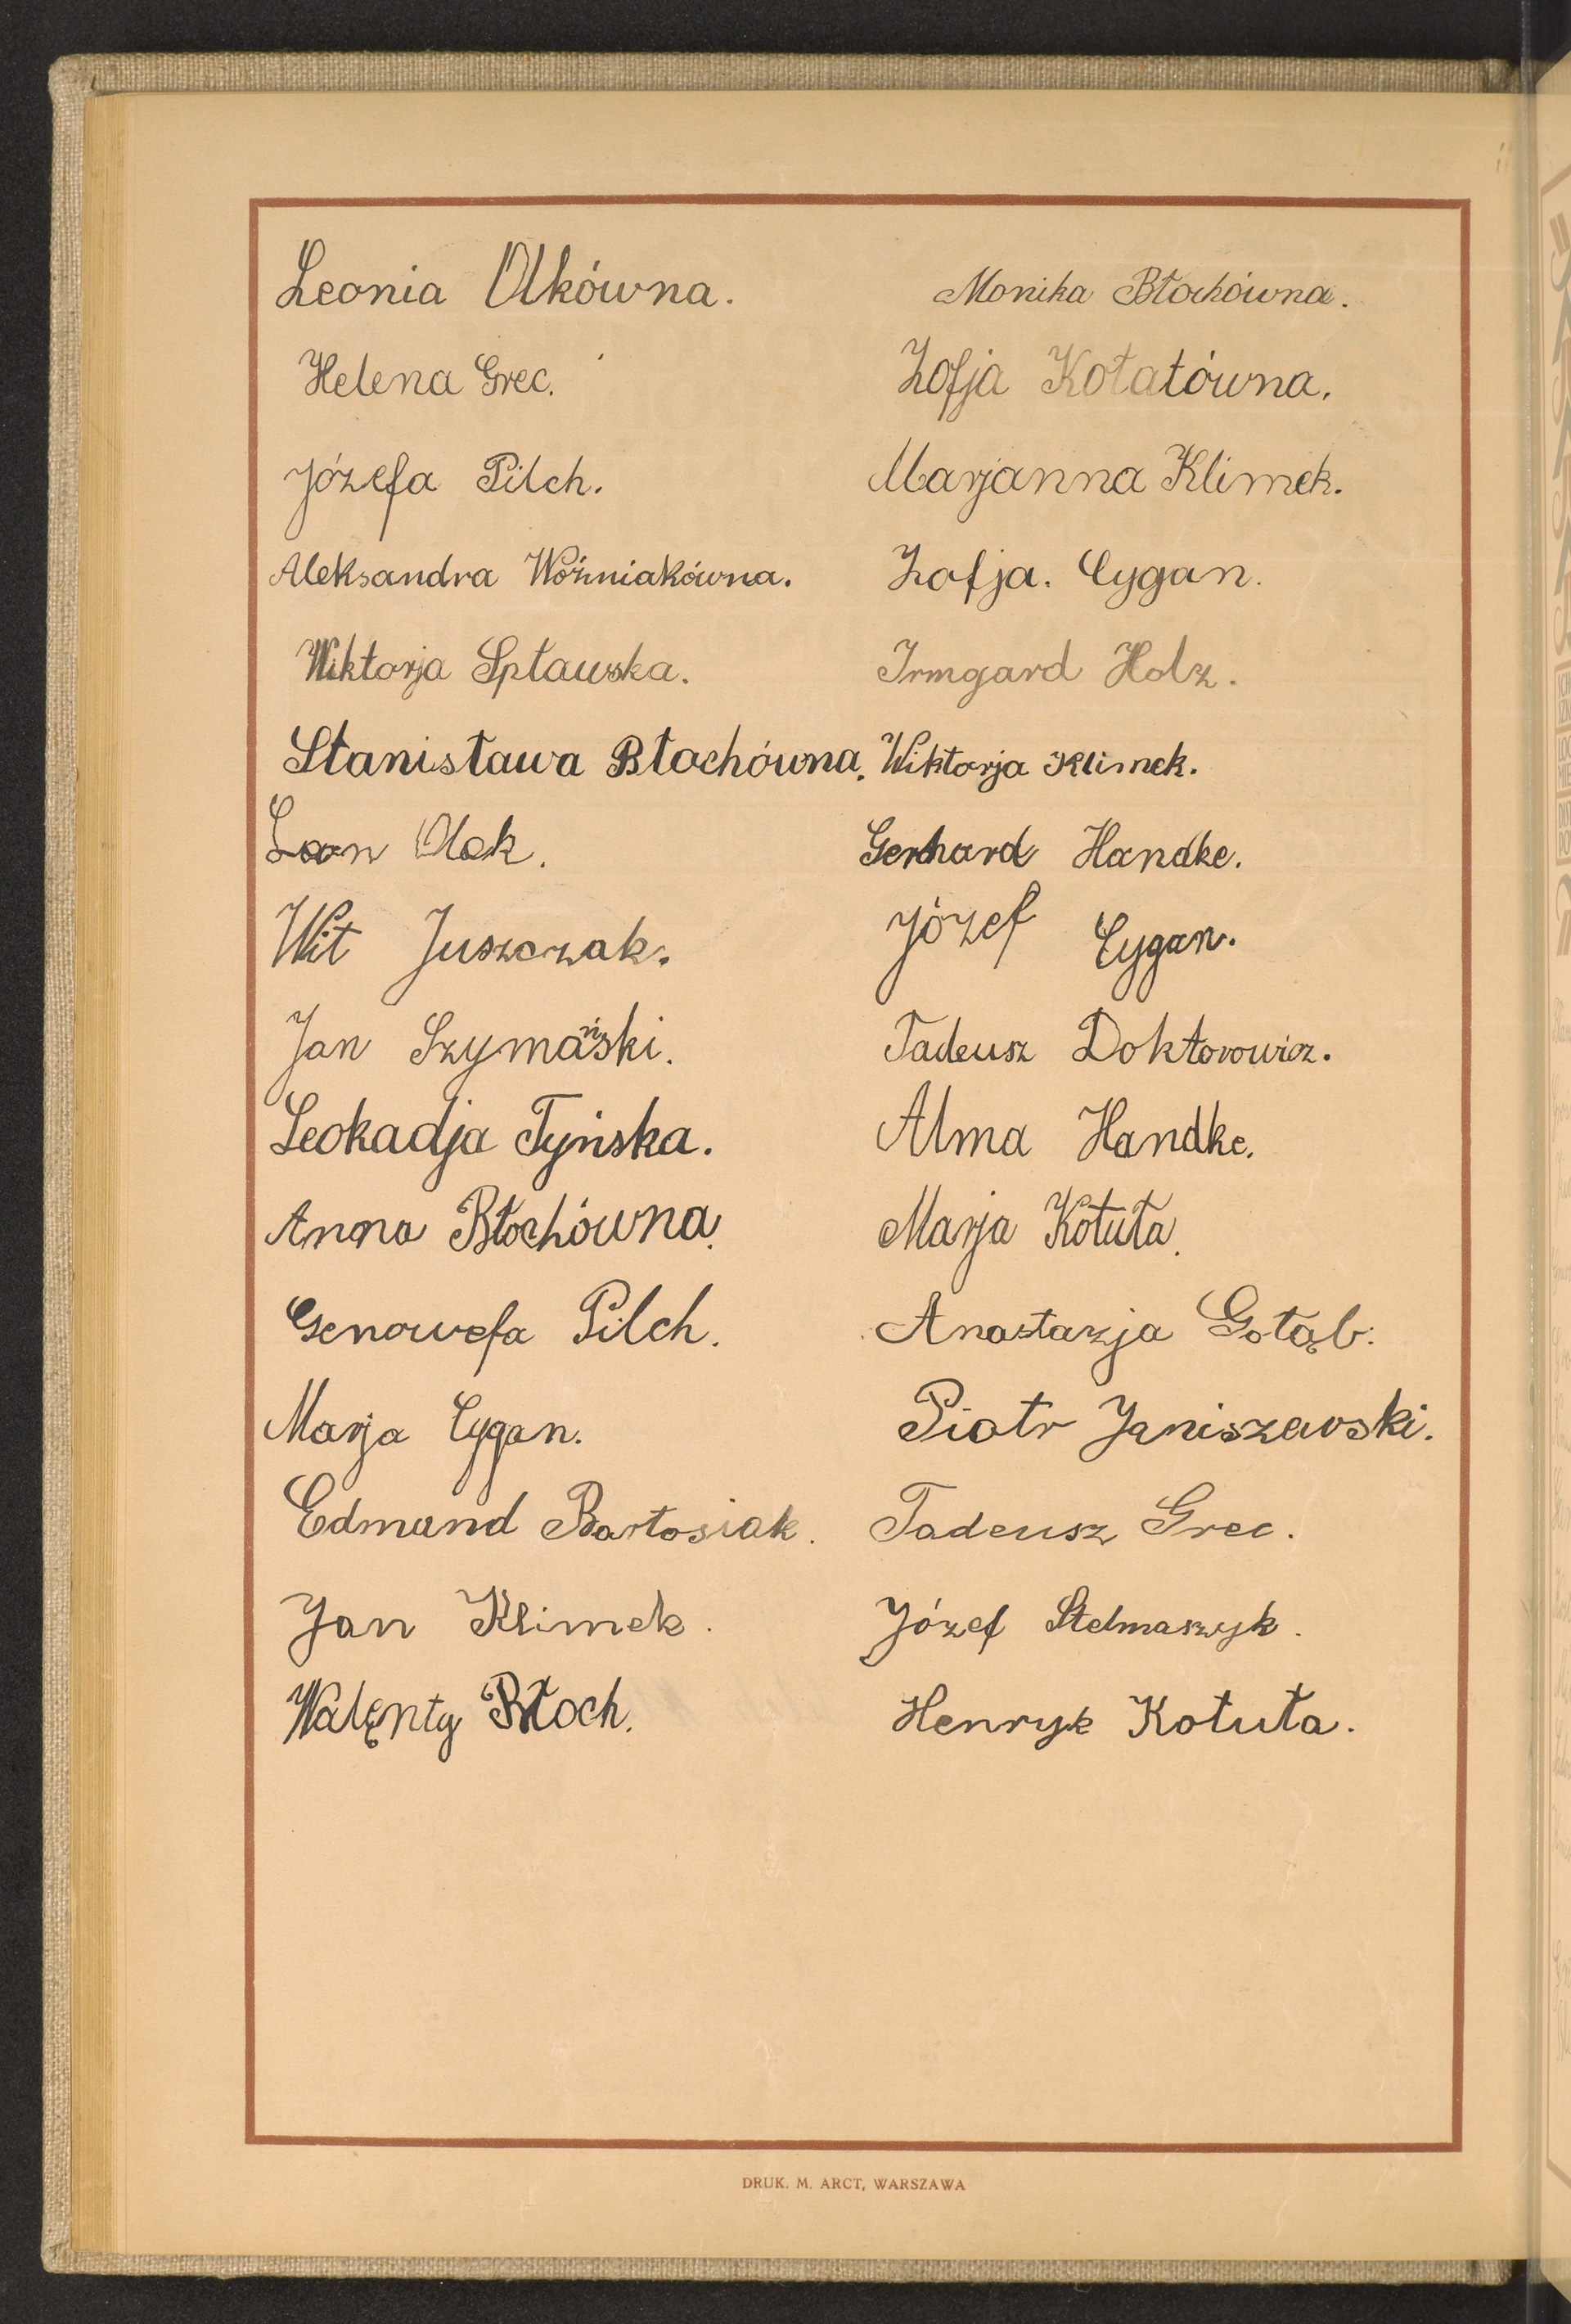 Leonia Olkówna.
Helena Grec.
Józefa Pilch.
Aleksandra Woźniakówna.
Wiktorja Spławska.
Stanisława Błochówna.
Leon Olek.
Wit Juszczak.
Jan Szymański.
Leokadja Tyńska.
Anna Błochówna.
Genowefa Pilch.
Marja Cygan.
Edmund Bartosiak.
Jan Klimek.
Walęnty Błoch.
Monika Błochówna.
Zofja Kołatówna.
Marjanna Klimek.
Zofja. Cygan.
Irmgard Holz.
Wiktorja Klimek.
Gerhard Handke.
Józef Cygan.
Tadeusz Doktorowicz.
Alma Handke.
Marja Kotuła.
Anastazja Gołąb.
Piotr Janiszewski.
Tadeusz Grec.
Józef Stelmaszyk.
Henryk Kotuła.
DRUK. M. ARCT, WARSZAWA